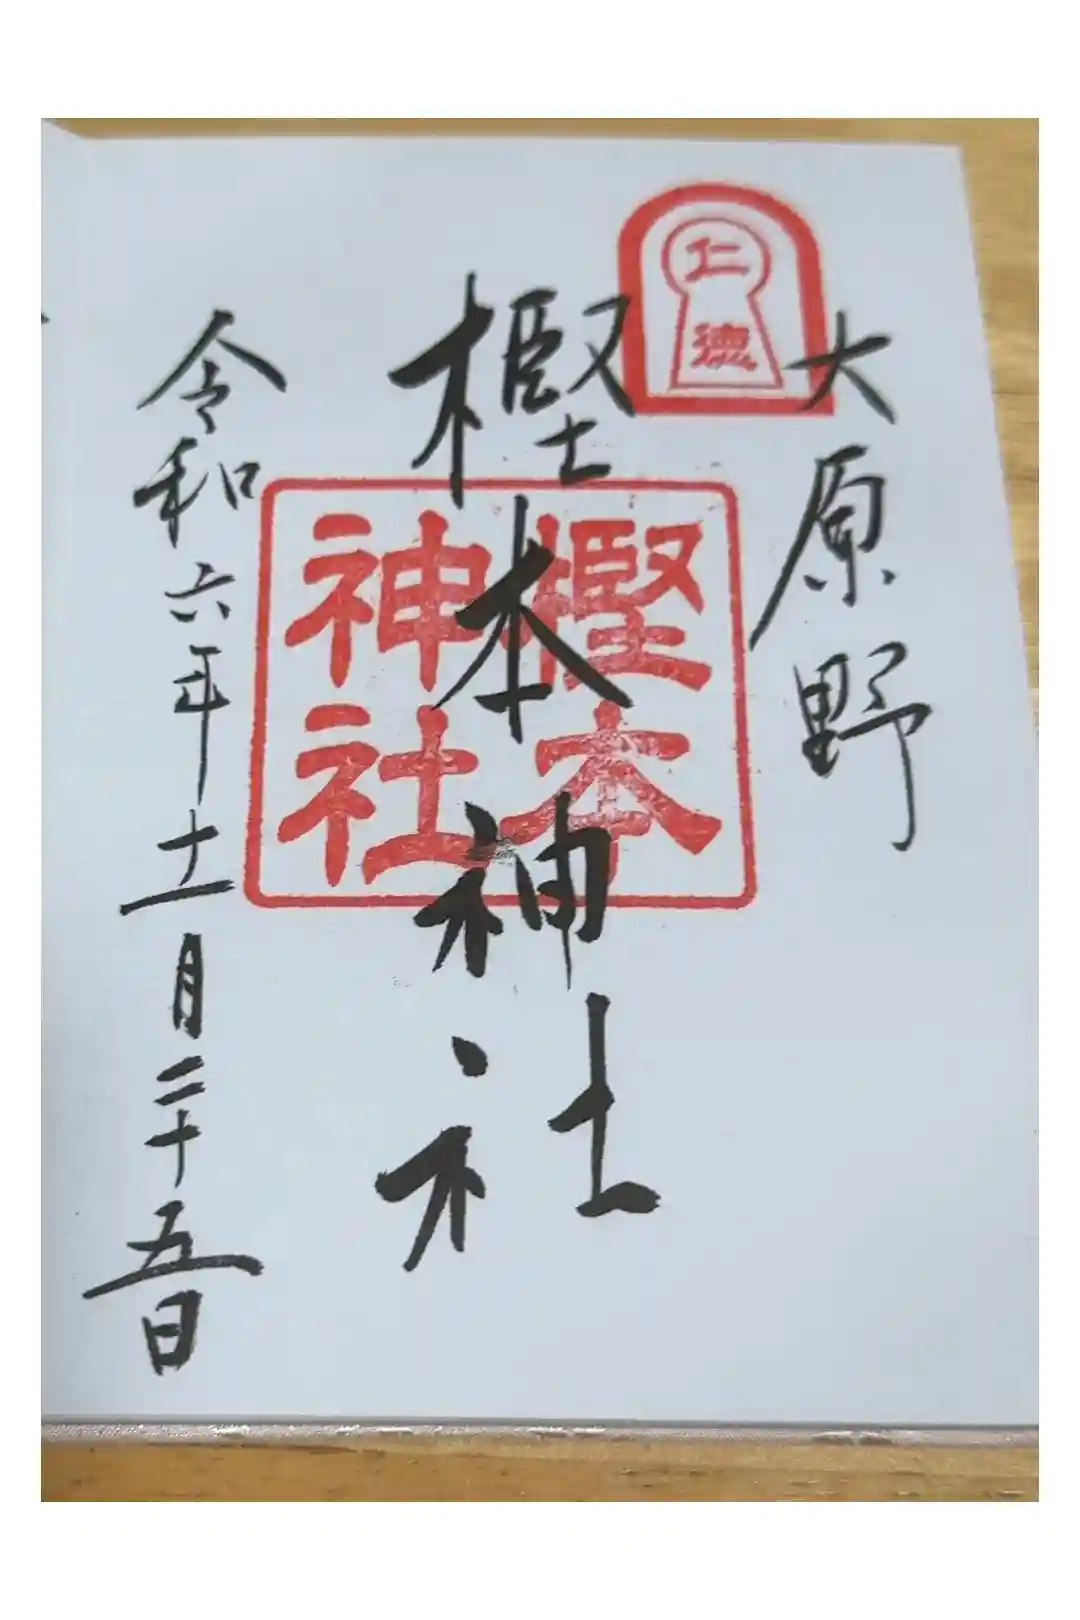 大原野
仁徳
樫本神社
樫本
神社
令和六年十一月二十五日